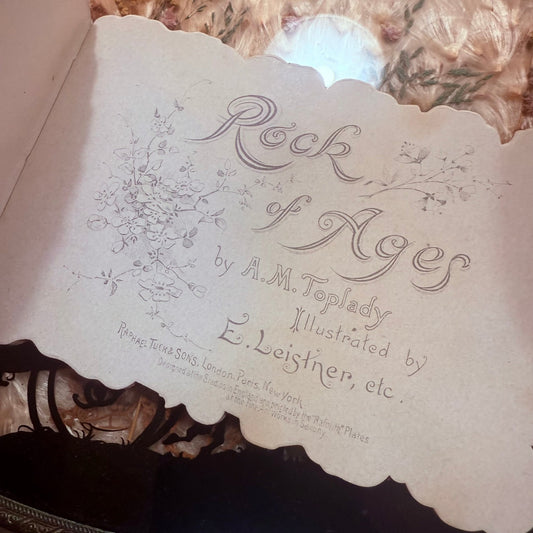 Rock
of Ages
by A.M. Toplady
Illustrated by
E. Leistner, etc.
RAPHAEL TUCK & SONS, London, Paris, New York.
Designed at the Studios in England and printed by the Plates
at the Fine Art Works in Saxony.